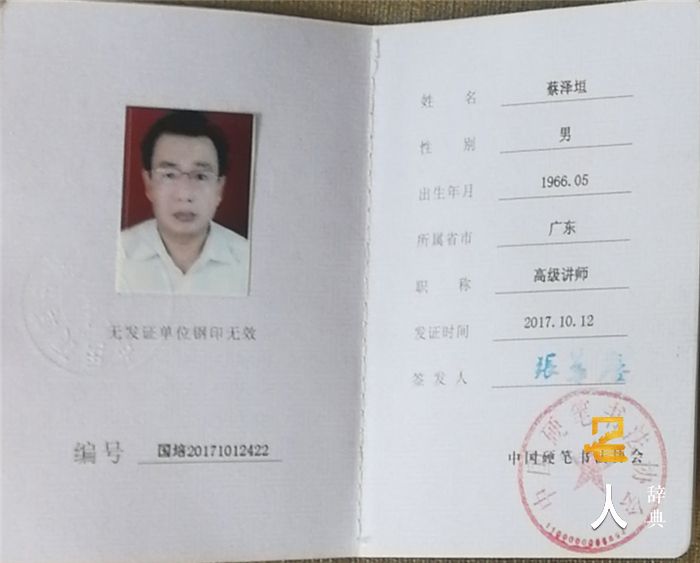 无发证单位钢印无效
编号 国培20171012422
姓名 蔡泽垣
性别 男
出生年月 1966.05
所属省市 广东
职称 高级讲师
发证时间 2017.10.12
签发人 張
中国硬笔书法协会
中国硬笔书法协会
人
辞典